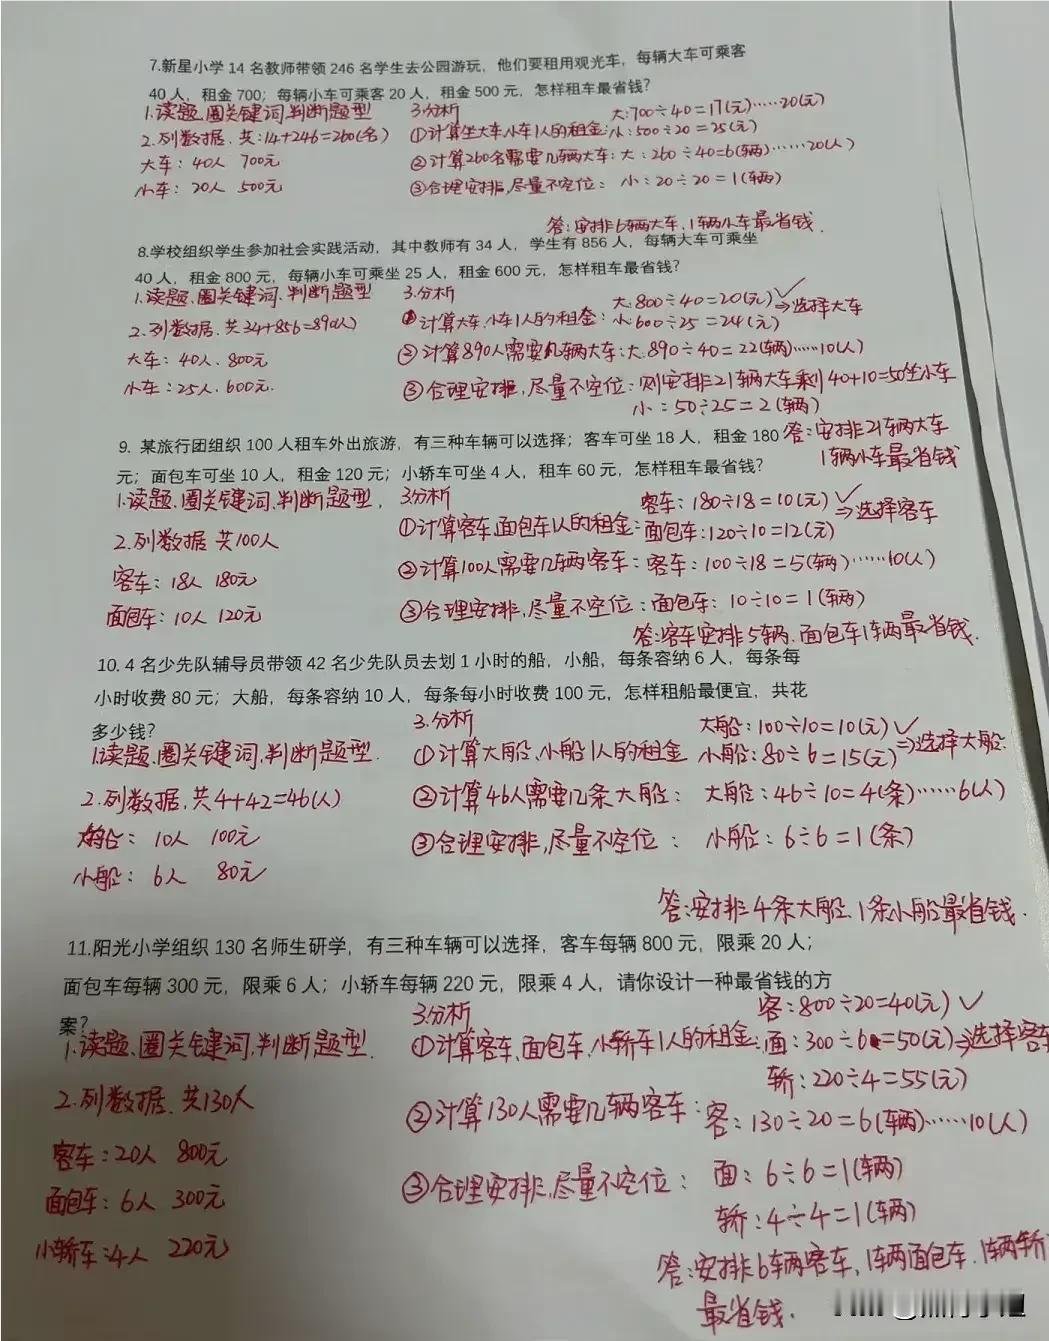 7.新星小学 14 名教师带领 246 名学生去公园游玩，他们要租用观光车，每辆大车可乘客
40 人，租金 700；每辆小车可乘客 20 人，租金 500 元，怎样租车最省钱？
1.读题、圈关键词、判断题型
2.列数据. 共:14+246=260(名)
大车: 40人 700元
小车: 20人 500元
3.分析
①计算坐大车、小车1人的租金: 大:700÷40=17(元)……20(元)
小:500÷20=25(元)
②计算260名需要几辆大车: 大: 260÷40=6(辆)……20(人)
③合理安排,尽量不空位: 小:20÷20=1(辆)
答:安排6辆大车、1辆小车最省钱.
8.学校组织学生参加社会实践活动，其中教师有 34 人，学生有 856 人，每辆大车可乘坐
40 人，租金 800 元，每辆小车可乘坐 25 人，租金 600 元，怎样租车最省钱？
1.读题、圈关键词、判断题型
2.列数据. 共34+856=890(人)
大车: 40人. 800元
小车: 25人. 600元.
3.分析
①计算大车、小车1人的租金: 大:800÷40=20(元)✓
小:600÷25=24(元) ⇒选择大车
②计算890人需要几辆大车: 大:890÷40=22(辆)……10(人)
③合理安排,尽量不空位: 则安排21辆大车剩40+10=50坐小车
小:50÷25=2(辆)
答:安排21辆大车
1辆小车最省钱
9. 某旅行团组织 100 人租车外出旅游，有三种车辆可以选择；客车可坐 18 人，租金 180
元；面包车可坐 10 人，租金 120 元；小轿车可坐 4 人，租车 60 元，怎样租车最省钱？
1.读题、圈关键词、判断题型,
2.列数据 共100人
客车: 18人 180元
面包车: 10人 120元
3分析
①计算客车、面包车1人的租金: 客车:180÷18=10(元)✓
面包车:120÷10=12(元) ⇒选择客车
②计算100人需要几辆客车: 客车:100÷18=5(辆)……10(人)
③合理安排,尽量不空位:面包车: 10÷10=1(辆)
答:客车安排5辆.面包车1辆最省钱.
10. 4 名少先队辅导员带领 42 名少先队员去划 1 小时的船，小船，每条容纳 6 人，每条每
小时收费 80 元；大船，每条容纳 10 人，每条每小时收费 100 元，怎样租船最便宜，共花
多少钱？
1.读题、圈关键词、判断题型.
2.列数据,共4+42=46(人)
大船: 10人 100元
小船: 6人 80元
3.分析
①计算大船、小船1人的租金 大船:100÷10=10(元)✓
小船:80÷6=15(元) ⇒选择大船.
②计算46人需要几条大船: 大船:46÷10=4(条)……6(人)
③合理安排,尽量不空位: 小船:6÷6=1(条)
答:安排4条大船、1条小船最省钱.
11.阳光小学组织 130 名师生研学，有三种车辆可以选择，客车每辆 800 元，限乘 20 人；
面包车每辆 300 元，限乘 6 人；小轿车每辆 220 元，限乘 4 人，请你设计一种最省钱的方
案？
1.读题、圈关键词、判断题型.
2.列数据.共130人
客车:20人 800元
面包车: 6人 300元
小轿车:4人 220元
3分析
①计算客车、面包车、小轿车1人的租金: 客:800÷20=40(元)✓
面:300÷6=50(元)⇒选择客车
轿:220÷4=55(元)
②计算130人需要几辆客车: 客:130÷20=6(辆)……10(人)
③合理安排,尽量不空位: 面:6÷6=1(辆)
轿:4÷4=1(辆)
答:安排6辆客车,1辆面包车.1辆轿
最省钱.